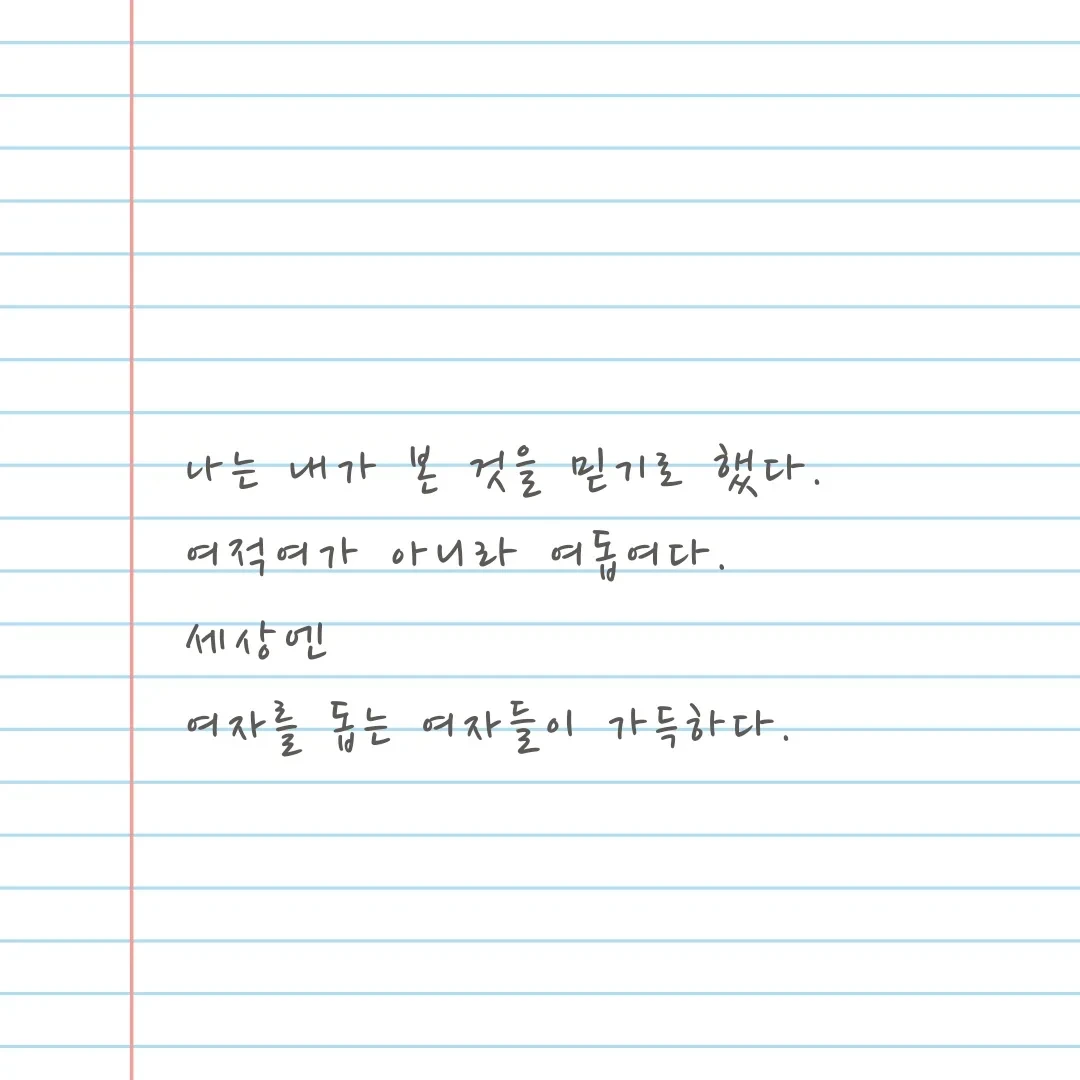 나는 내가 본 것을 믿기로 했다.
여적여가 아니라 여돕여다.
세상엔
여자를 돕는 여자들이 가득하다.